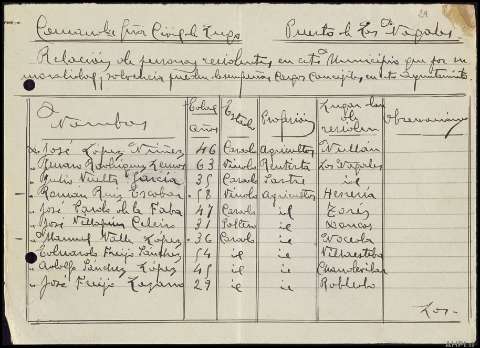 Comand Gñar Civil de Lugo Puesto de Los Nogales
Relación de personas residentes, en este Municipio que por su
moralidad, solvencia pueden desempeñar Cargos Concejiles, en este Ayuntamiento.
Nombres Edad años Estado Profesión Lugar de residen Observaciones
" José López Núñez 46 Casado Agricultor Nullán
" Rodríguez 63 Viudo Rentista Los Nogales
" Julio García 35 Casado Sastre id
" Ramón Ruiz Escobar 58 Viudo Agricultor Herrería
" José Pardo de la Faba 47 Casado id
" José Villapún 31 Soltero id Doncos
" Manuel Valle López 36 Casado id Noceda
" Eduardo Freijo Sánchez 54 id id Villaesteba
" Adolfo Sánchez López 45 id id
" José Freijo 29 id id Robledo
Los-